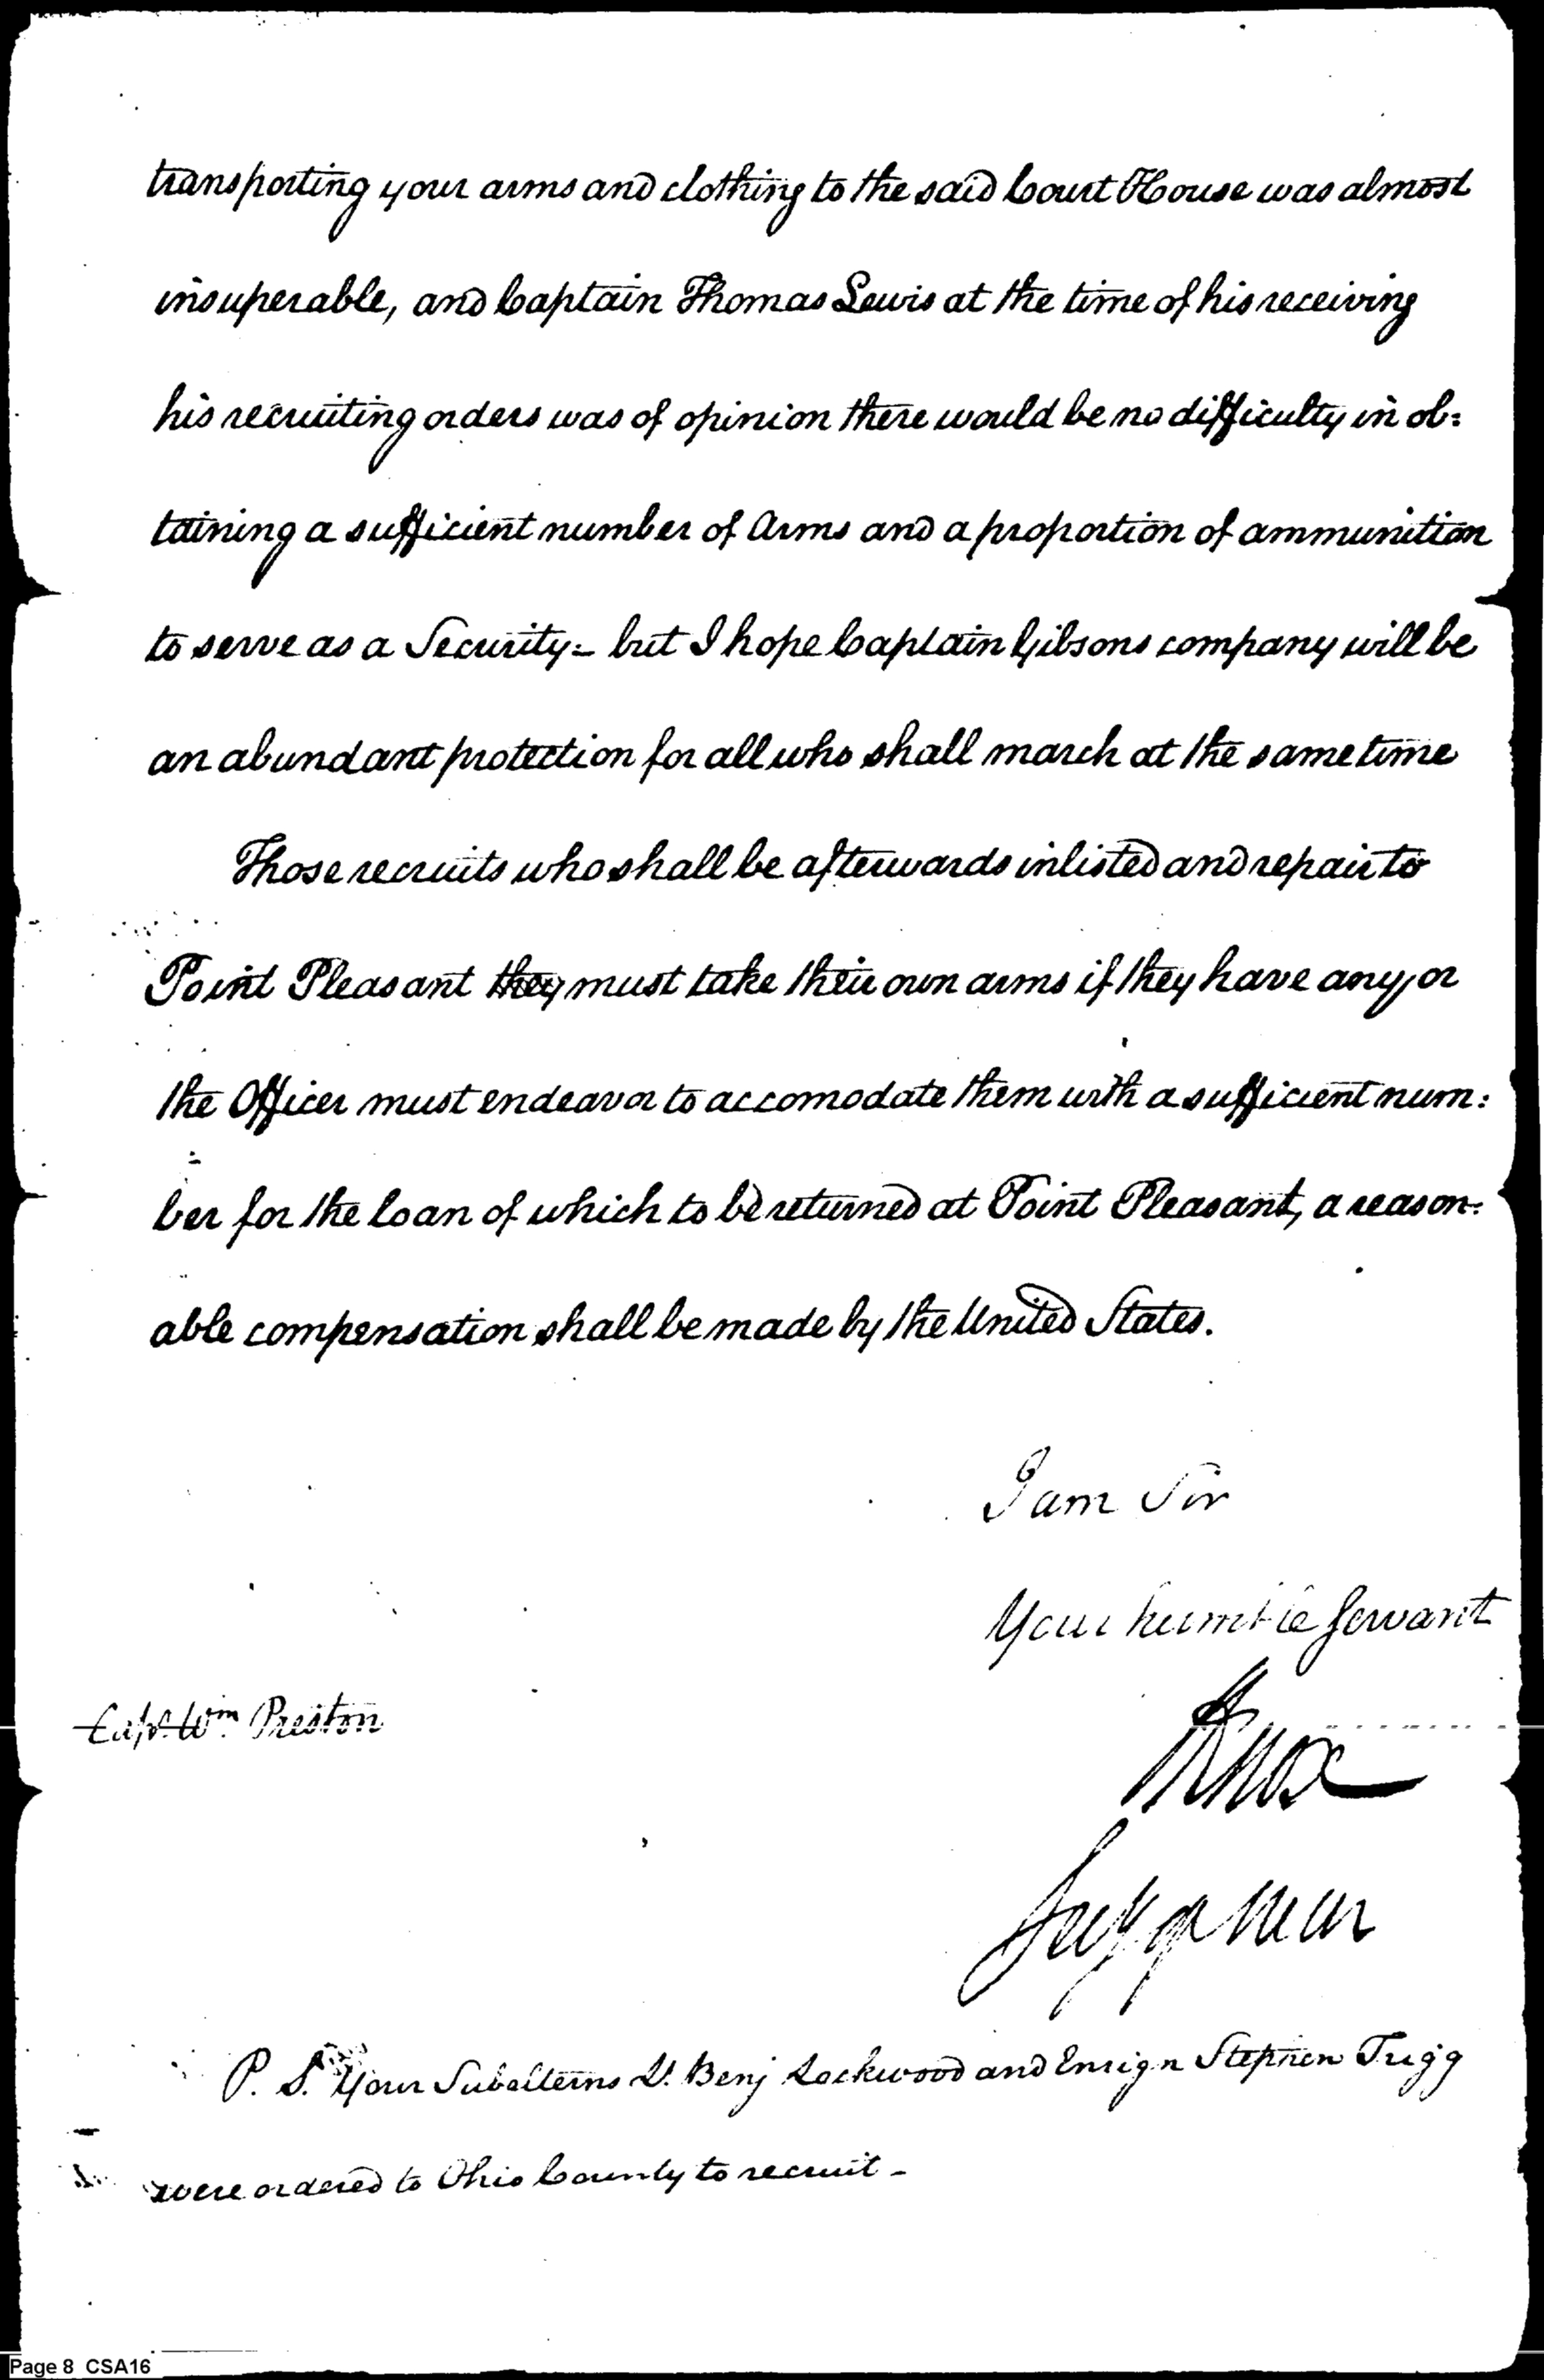 transporting your arms and clothing to the said Court House was almost
insuperable, and Captain Thomas Lewis at the time of his receiving
his recruiting orders was of opinion there would be no difficulty in ob:
taining a sufficient number of Arms and a proportion of ammunition
to serve as a Security:- but I hope Captain Gibsons company will be
an abundant protection for all who shall march at the same time
Those recruits who shall be afterwards inlisted and repair to
Point Pleasant they must take their own arms if they have any, or
the Officer must endeavor to accomodate them with a sufficient num:
ber for the loan of which to be returned at Point Pleasant, a reason:
able compensation shall be made by the United States.
I am Sir
Your humble Servant
Capt. Wm Preston
HKnox
Secy of War
P. S. Your Subalterns Lt. Benj Lockwood and Ensign Stephen Trigg
were ordered to Ohio County to recruit -
Page 8 CSA16